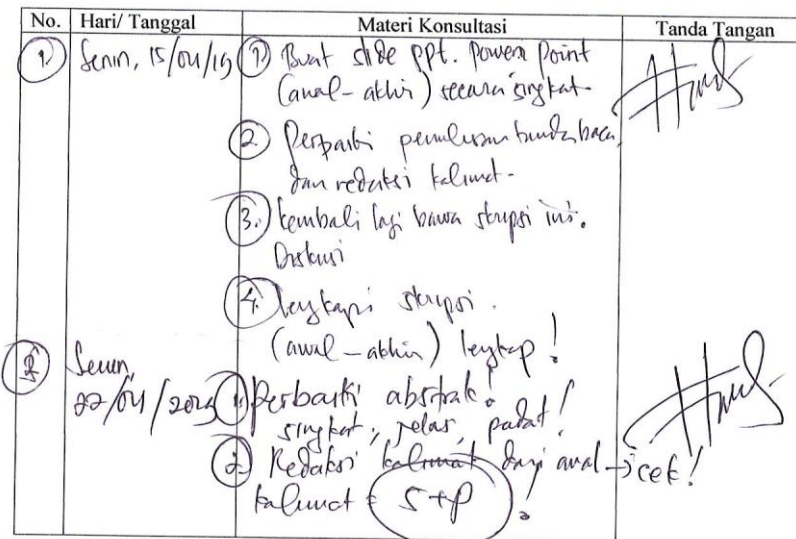 No. Hari/ Tanggal Materi Konsultasi Tanda Tangan
1. Senin, 15/04/19 1. Buat slide ppt. power point
(awal - akhir) secara singkat.
2. Perbaiki penulisan tanda baca,
dan redaksi kalimat.
3. kembali lagi bawa skripsi ini.
Diskusi
4. lengkapi skripsi.
(awal - akhir) lengkap!
2. Senin,
22/04/2019 1. Perbaiki abstrak!
singkat, jelas, padat!
2. Redaksi kalimat dari awal → cek!
kalimat = S+P !